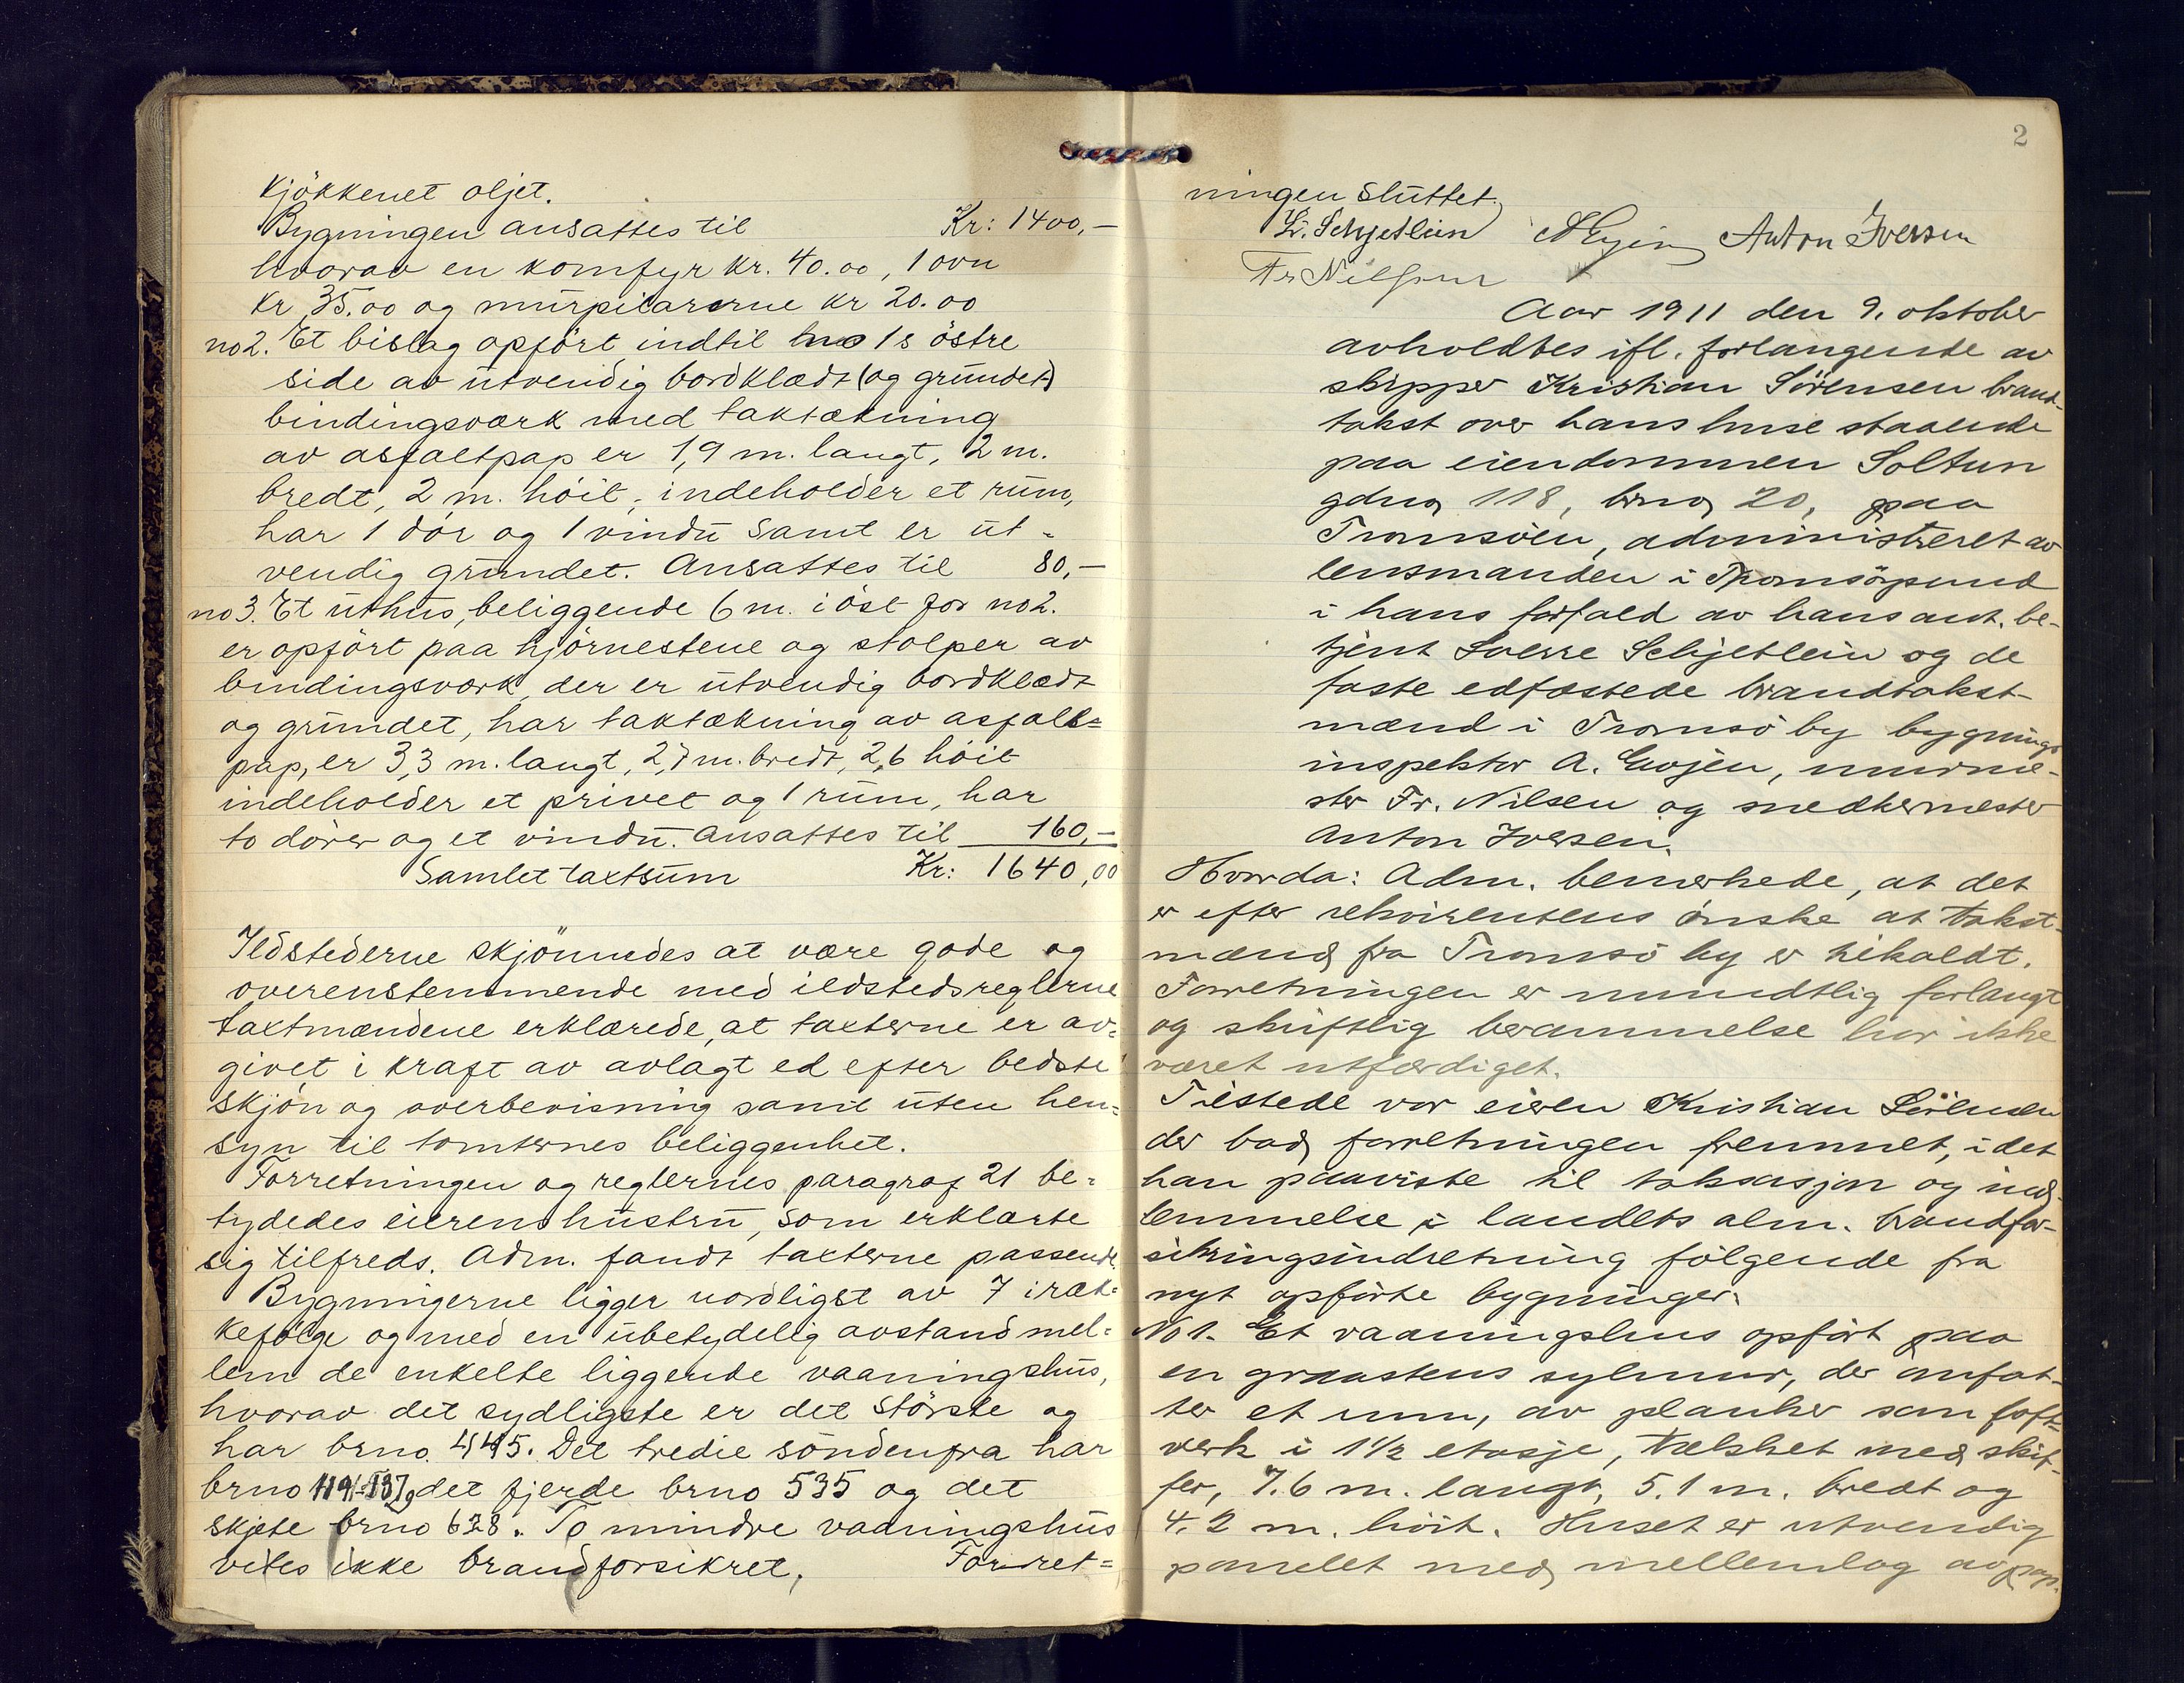 kjökkenet oljet.
Bygningen ansattes til Kr: 1400,-
hvorav en komfyr kr. 40.00, 1 ovn
kr 35.00 og murpilarerne kr 20.00
no 2. Et bislag opfört indtil no 1s östre
side av utvendig bordklædt (og grundet)
bindingsværk med taktækning
av asfaltpap er 1,9 m. langt, 2 m.
bredt, 2 m. höit, indeholder et rum,
har 1 dör og 1 vindu samt er ut-
vendig grundet. Ansattes til 80,-
no 3. Et uthus, beliggende 6 m. i öst for no 2.
er opfört paa hjörnestene og stolper av
bindingsværk, der er utvendig bordklædt
og grundet, har taktækning av asfalt=
pap, er 3,3 m. langt, 2,7 m. bredt, 2,6 höit
indeholder et privet og 1 rum, har
to dörer og et vindu. Ansattes til 160,-
Samlet taxtsum Kr: 1640,00
Ildstederne skjönnedes at være gode og
overenstemmende med ildstedsreglerne
taxtmændene erklærede, at taxterne er av=
givet i kraft av avlagt ed efter bedste
skjön og overbevisning samt uten hen=
syn til tomternes beliggenhet.
Forretningen og reglernes paragraf 21 be=
tydedes eierens hustru, som erklærte
sig tilfreds. Adm. fandt taxterne passende.
Bygningerne ligger nordligst av 7 i ræk=
kefölge og med en ubetydelig avstand mel=
lem de enkelte liggende vaaningshus,
hvorav det sydligste er det störste og
har brno. 445. Det tredie söndenfra har
brno 119/537, det fjerde brno 535 og det
skjete brno 628. To mindre vaaningshus
vites ikke brandforsikret, Forret=
2
ningen sluttet.
Sv. Schjetlein Anton Iversen
Fr Nilsen
Aar 1911 den 9. oktober
avholdtes ifl. forlangende av
skipper Kristian Sörensen brand-
takst over hans huse staaende
paa eiendommen Soltun
gdno 118, brno 20, paa
Tromsöen, administreret av
lensmanden i Tromsöysund
i hans forfald av hans aut. be-
tjent Sverre Schjetlein og de
faste edfæstede brandtakst-
mænd i Tromsö by bygnings
inspektör A. Gvojen, murme-
ster Fr. Nilsen og snedkermester
Anton Iversen.
Hvorda: Adm. bemerkede, at det
er efter rekvirentens önske at takst-
mænd fra Tromsö by er tilkaldt.
Forretningen er mundtlig forlangt
og skriftlig berammelse har ikke
været utfærdiget.
Tilstede var eieren Kristian Sörensen
der bad forretningen fremmet, i det
han paaviste til taksasjon og ind-
lemmelse i landets alm. brandfor-
sikringsindretning fölgende fra
nyt opförte bygninger.
No 1. Et vaaningshus opfört paa
en graastens sylmur, der omfat-
ter et rum, av planker som loft-
verk i 1½ etasje, tækket med skif-
fer, 7.6 m. langt, 5.1 m. bredt og
4.2 m. höit. Huset er utvendig
panelet med mellemlag av pap.